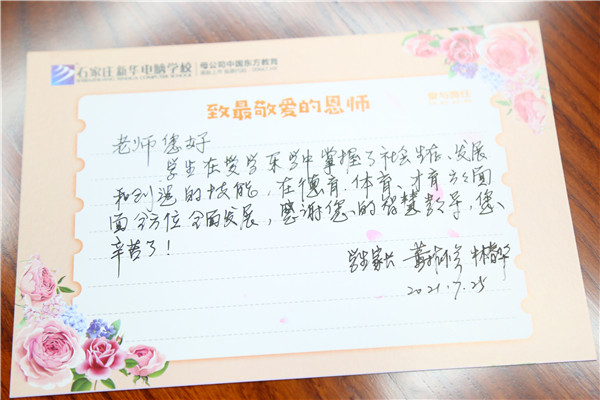 石家庄新华电脑学校 母公司中国东方教育
致最敬爱的恩师
老师您好
学生在受学乐学中掌握了社会生存、发展
和创造的技能，在德育、体育、才育方方面
面全方位全面发展，感谢您的智慧教导，您、
辛苦了！
学生家长
2021.7.25